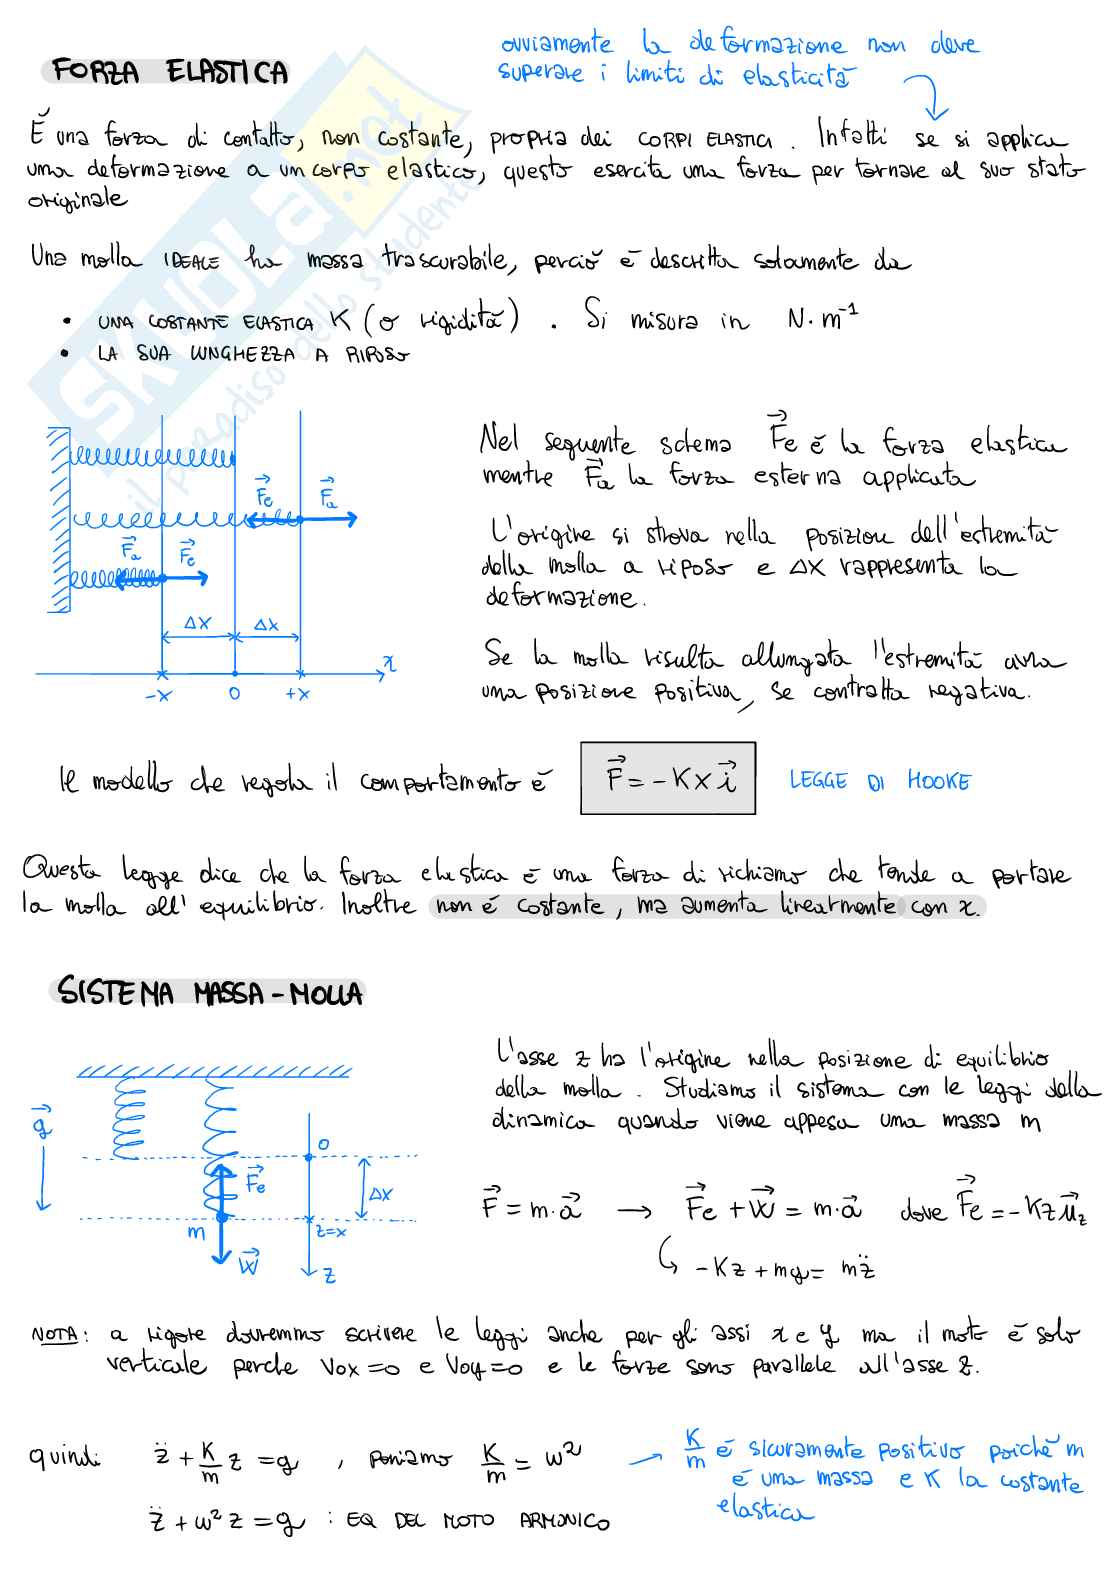 ovviamente la deformazione non deve
superare i limiti di elasticità
FORZA ELASTICA
È una forza di contatto, non costante, propria dei CORPI ELASTICI. Infatti se si applica
una deformazione a un corpo elastico, questo esercita una forza per tornare al suo stato
originale
Una molla IDEALE ha massa trascurabile, perciò è descritta solamente da
• UNA COSTANTE ELASTICA K (o rigidità). Si misura in N·m⁻¹
• LA SUA LUNGHEZZA A RIPOSO
Fe Fa
Fa Fe
Δx Δx
x
-x 0 +x
Nel seguente schema F⃗e è la forza elastica
mentre F⃗a la forza esterna applicata
L'origine si strova nella posizion dell'estremità
della molla a riposo e Δx rappresenta la
deformazione.
Se la molla risulta allungata l'estremità avra
una posizione positiva, se contratta negativa.
Il modello che regola il comportamento è F⃗ = -Kx i⃗ LEGGE DI HOOKE
Questa legge dice che la forza elastica è una forza di richiamo che tende a portare
la molla all'equilibrio. Inoltre non è costante, ma aumenta linearmente con x.
SISTEMA MASSA-MOLLA
g⃗
0
F⃗e
Δx
m
z=x
W⃗
z
L'asse z ha l'origine nella posizione di equilibrio
della molla. Studiamo il sistema con le leggi della
dinamica quando viene appesa una massa m
F⃗ = m·a⃗ → F⃗e + W⃗ = m·a⃗ dove F⃗e = -Kz u⃗z
↳ -Kz + mg = mz̈
NOTA: a rigore dovremmo scrivere le leggi anche per gli assi x e y ma il moto è solo
verticale perche Vox=0 e Voy=0 e le forze sono parallele all'asse z.
quindi z̈ + K/m z = g , poniamo K/m = w²
→ K/m è sicuramente positivo poichè m
è una massa e K la costante
elastica
z̈ + w² z = g : EQ DEL MOTO ARMONICO
SKUOLA.net
il paradiso dello studente